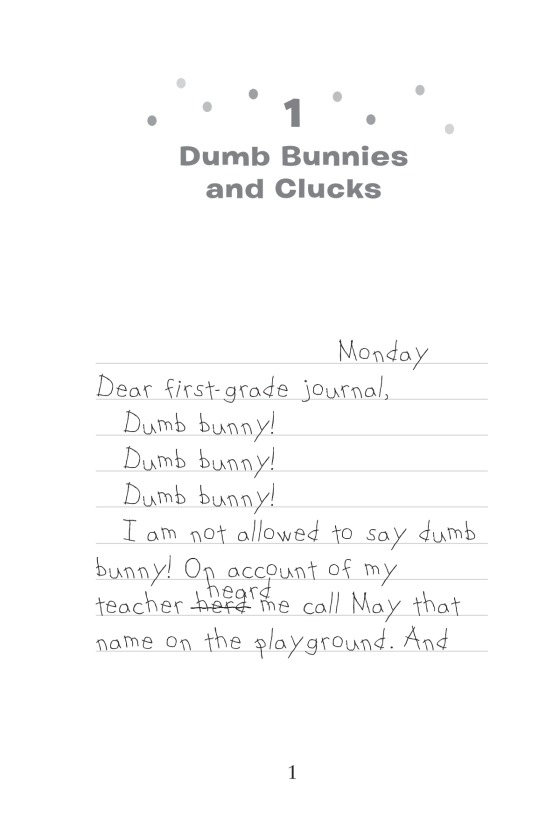 1
Dumb Bunnies
and Clucks
Monday
Dear first-grade journal,
Dumb bunny!
Dumb bunny!
Dumb bunny!
I am not allowed to say dumb
bunny! On account of my
heard
teacher herd me call May that
name on the playground. And
1